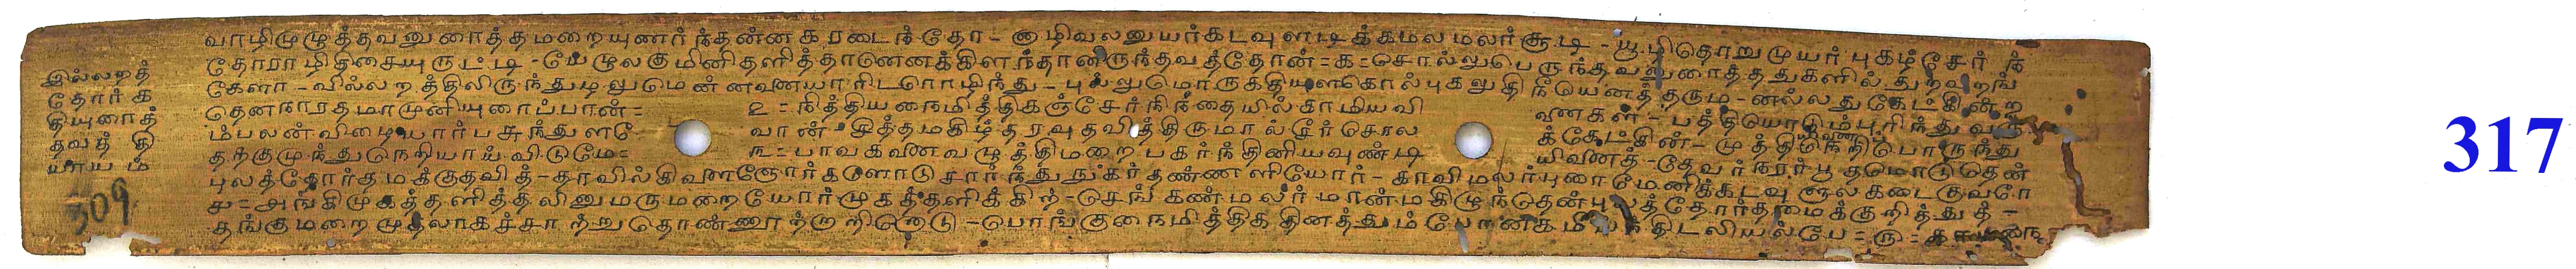 வாழிமுழுத்தவனுரைத்தமறையுணர்ந்தன்னகரடைந்தோ - னூழிவலனுயர்கடவுளடிக்கமலமலர்சூடி - யூழிதொறுமுயர்புகழ்சேர்
தோராழிதிசையுருட்டி - யேழுலகுமினிதளித்தானெனக்கிளந்தானருந்தவத்தோன் = க = சொல்லுபெருந்தவனுரைத்ததுகளில்துறவறங்
கேளா - வில்லறத்திலிருந்துடிலுமென்னவணயாரிடரொழிந்து - புல்லுமொருகதியுளகொல்புகலுதிநீயெனத்தரும - னல்லதுகேட்கின்ற
தெனநாரதமாமுனியுரைப்பான் = உ = நித்தியநைமித்திகஞ்சேர்நிந்தையில்காமியவி வணகள் - பத்தியொடும்புரிந்துவரு
ம்பலன்விழையார்பசுந்துளவே வான் சித்தமகிழ்தரவுதவித்திருமால்சீர்சொல க்கேட்கின் - முத்தி
தற்குமுந்துநெறியாய்விடுமே = ௩ = பாவகவணவழுத்திமறைபகர்ந்தினியவுண்டி யிவணத் - தேவர்நரர்பூதமொடுதென்
புலத்தோர்தமக்குதவித் - தாவில்கிவளஞோர்களோடுசார்ந்துநுகர்தண்ணளியோர் - காவிமலர்புரைமேனிக்கடவுளுலகடைகுவரே
௪ = அங்கிமுகத்தளித்தலினுமருமறையோர்முகத்தளிக்கிற் - செங்கண்மலர்மான்மகிழுந்தென்புலத்தோர்தமைக்குறித்துத் -
தங்குமறைமுதலாகச்சாற்றுதொண்ணூற்றறினொடு - பொங்குநைமித்திகதினத்தும் = ரு =
இல்லறத்
தோர்க
தியுரைத்
தவத்தி
யாயம்
309
317